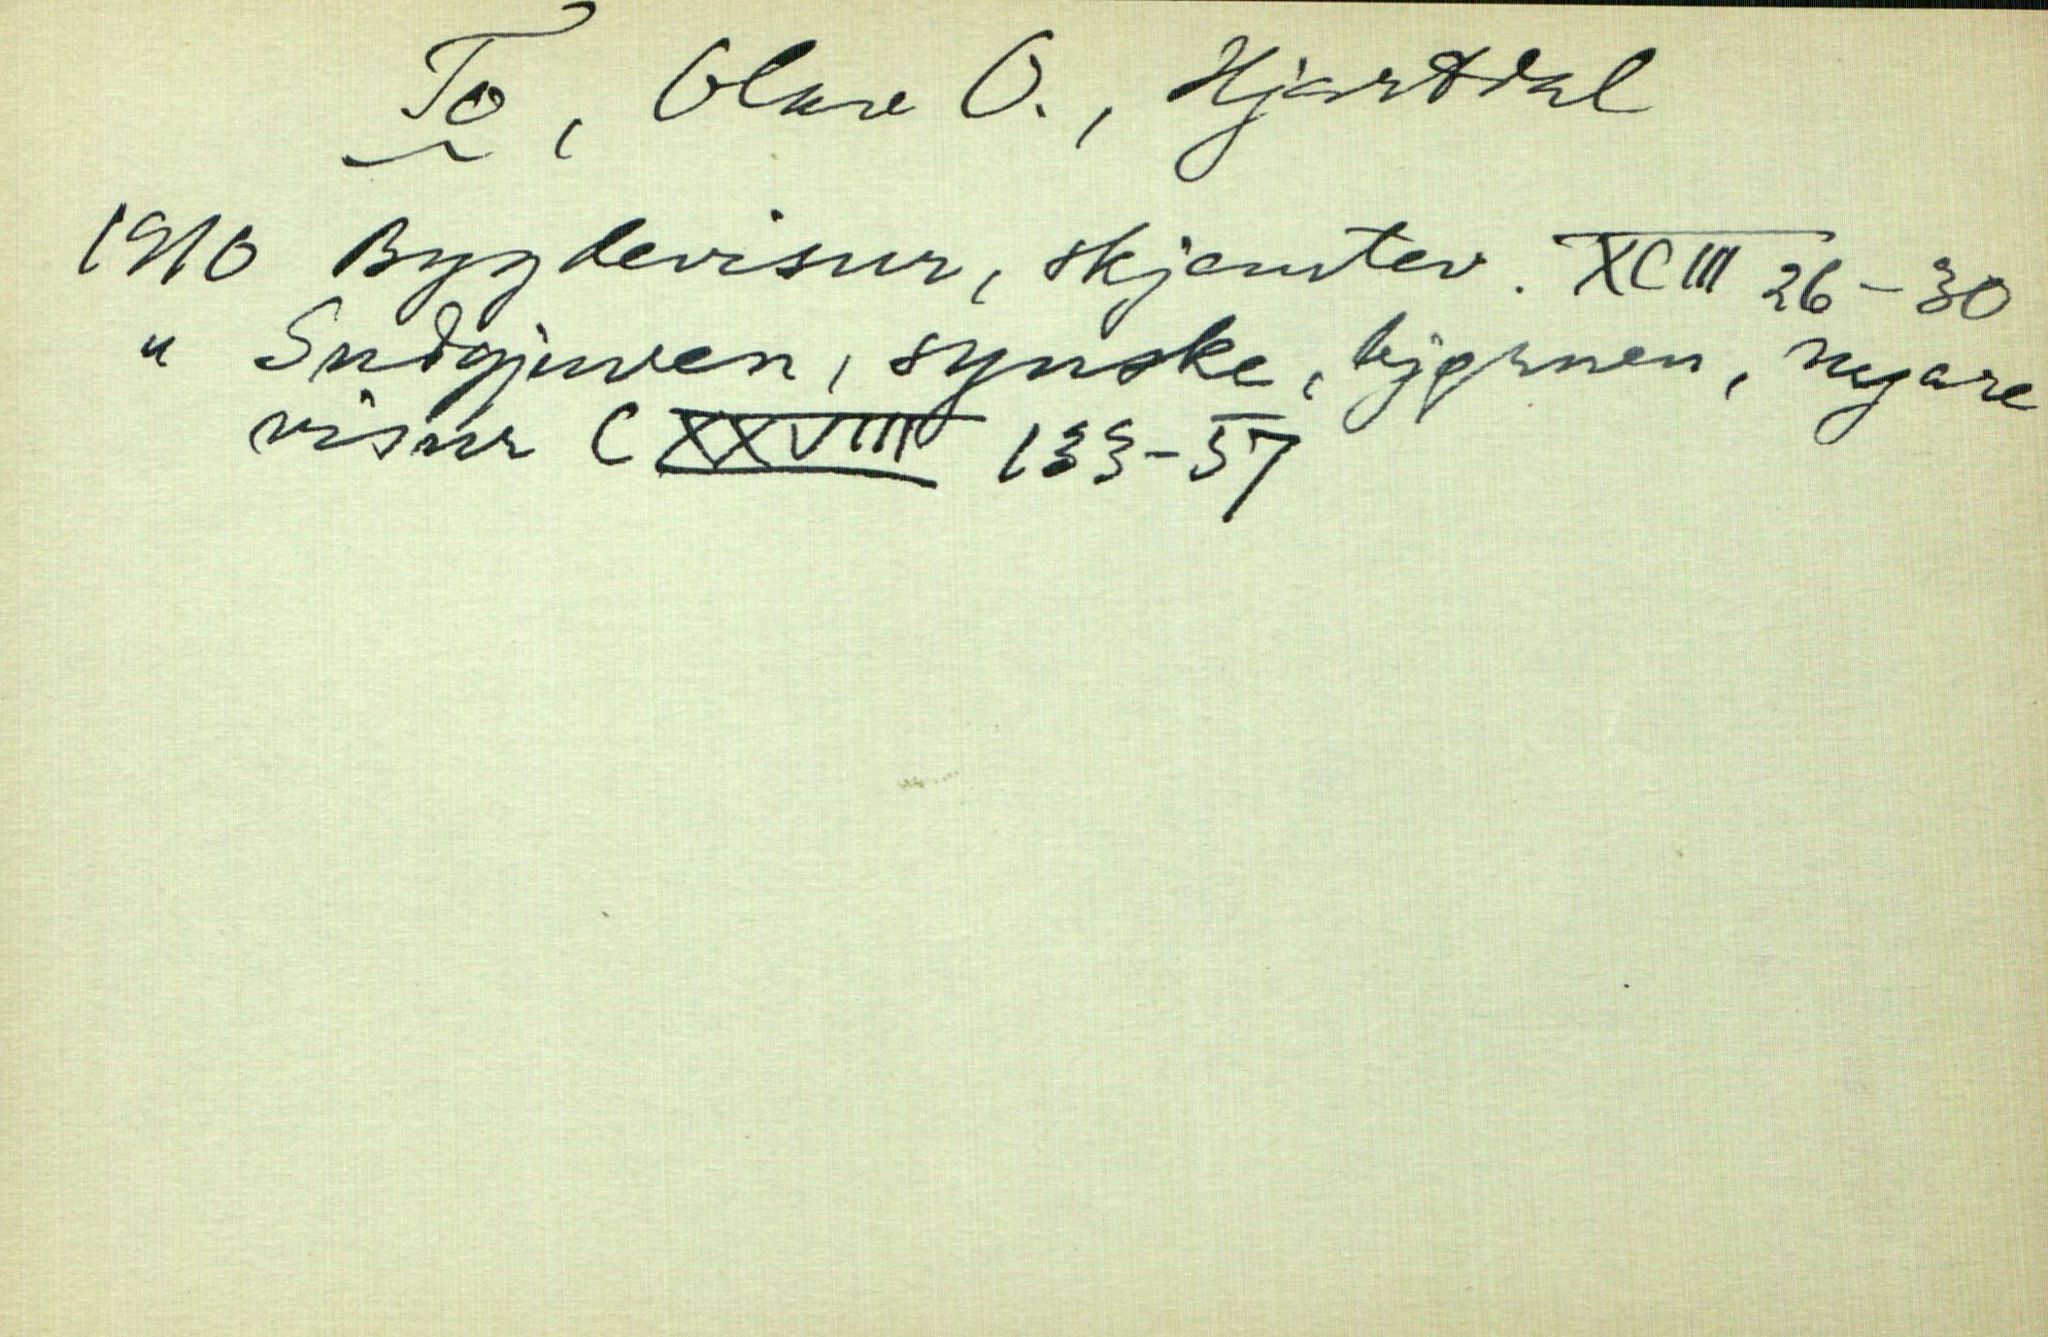 To, Olave O., Hjartdal
1910 Bygdevisur, skjemtev. XCIII 26-30
" Snøgjuven, synske, bjørnen, nyare
visur CXXVIII 133-57